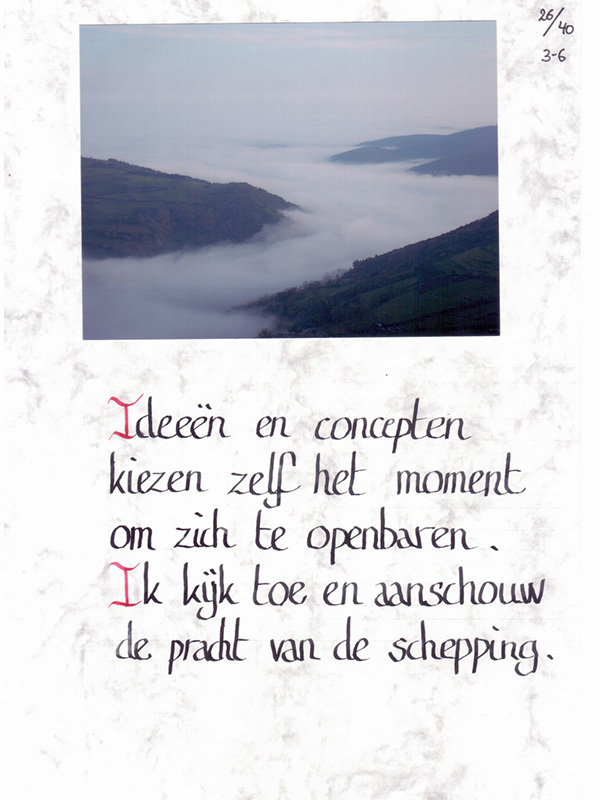 26/40
3-6
Ideeën en concepten
kiezen zelf het moment
om zich te openbaren.
Ik kijk toe en aanschouw
de pracht van de schepping.